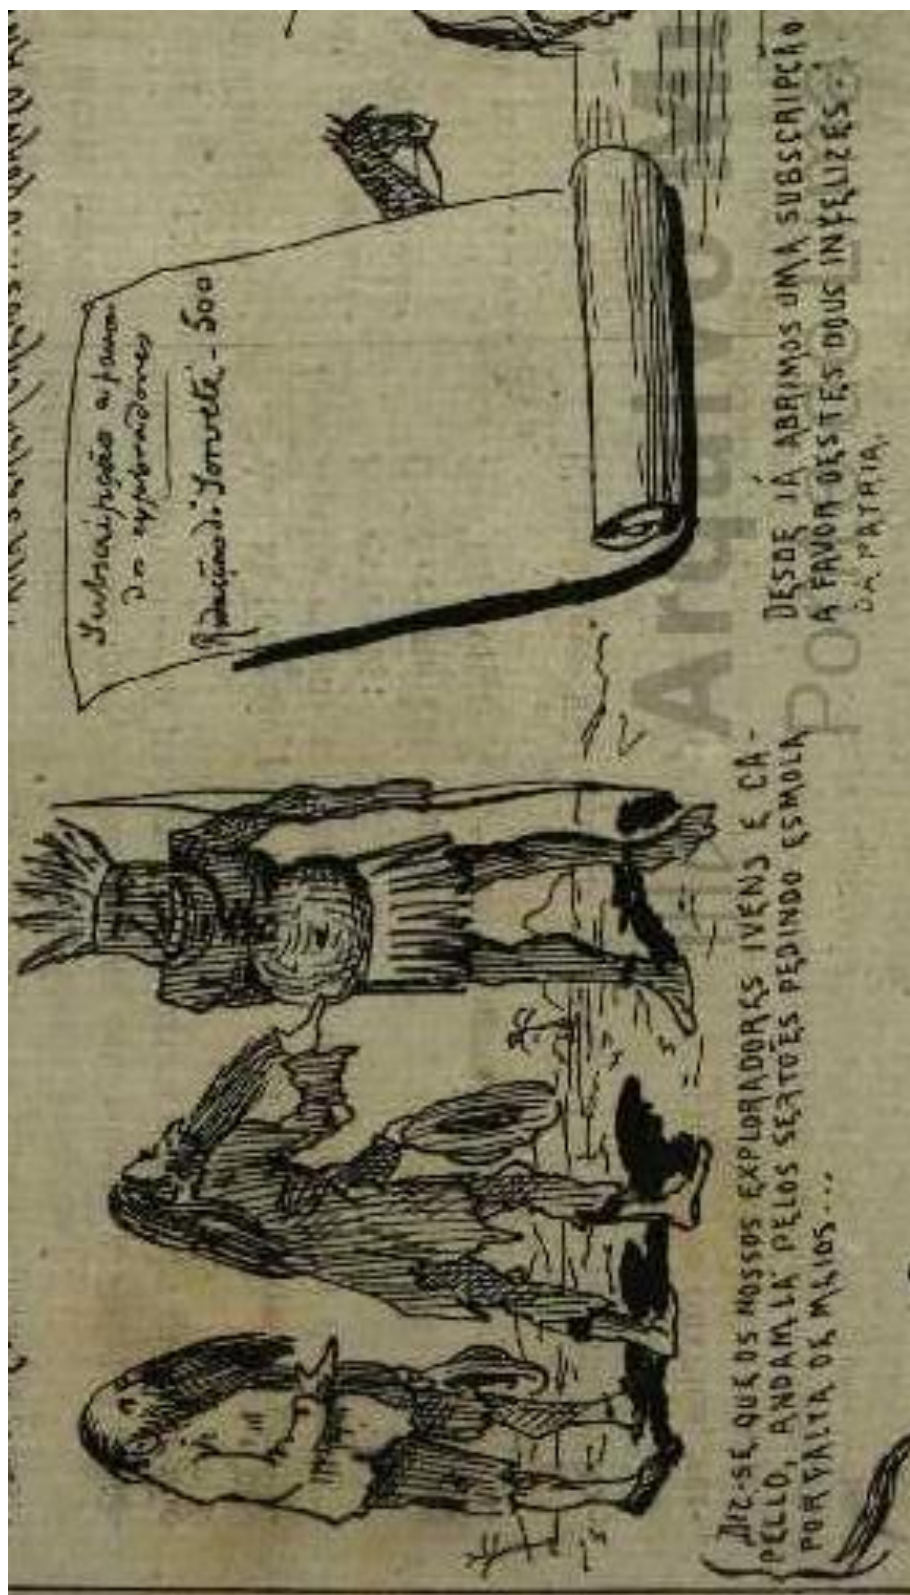 DIZ-SE QUE OS NOSSOS EXPLORADORES IVENS E CA-
PELLO, ANDAM LÁ PELOS SERTÕES PEDINDO ESMOLA
POR FALTA DE MEIOS...
Subscripção a favor
dos exploradores
Redacção do Sorvete - 500
DESDE JÁ ABRIMOS UMA SUBSCRIPÇÃO
A FAVOR DESTES DOUS INFELIZES
DA PATRIA.
Arquivo M
Po